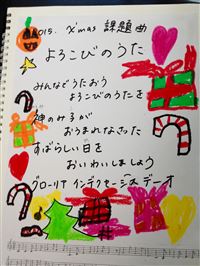 2015. X'mas 課題曲
よろこびのうた
みんなでうたおう
よろこびのうたを
神のみ子が
おうまれなさった
すばらしい日を
おいわいしましょう
グローリア インデクセージス デーオ